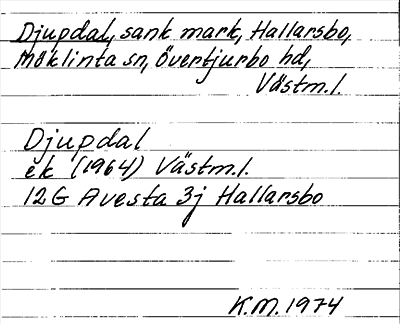 Djupdal, sank mark, Hallarsbo,
Möklinta sn, Övertjurbo hd,
Västm.l.
Djupdal
ek (1964) Västm.l.
12G Avesta 3j Hallarsbo
K.M. 1974